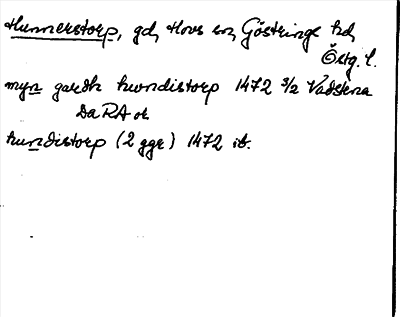 Hunnerstorp, gd, Hovs sn, Göstrings hd,
Östg. l.
myn gardh hwndistorp 1472 3/2 Vadstena
DaRA or
hundistorp (2 ggr) 1472 ib.